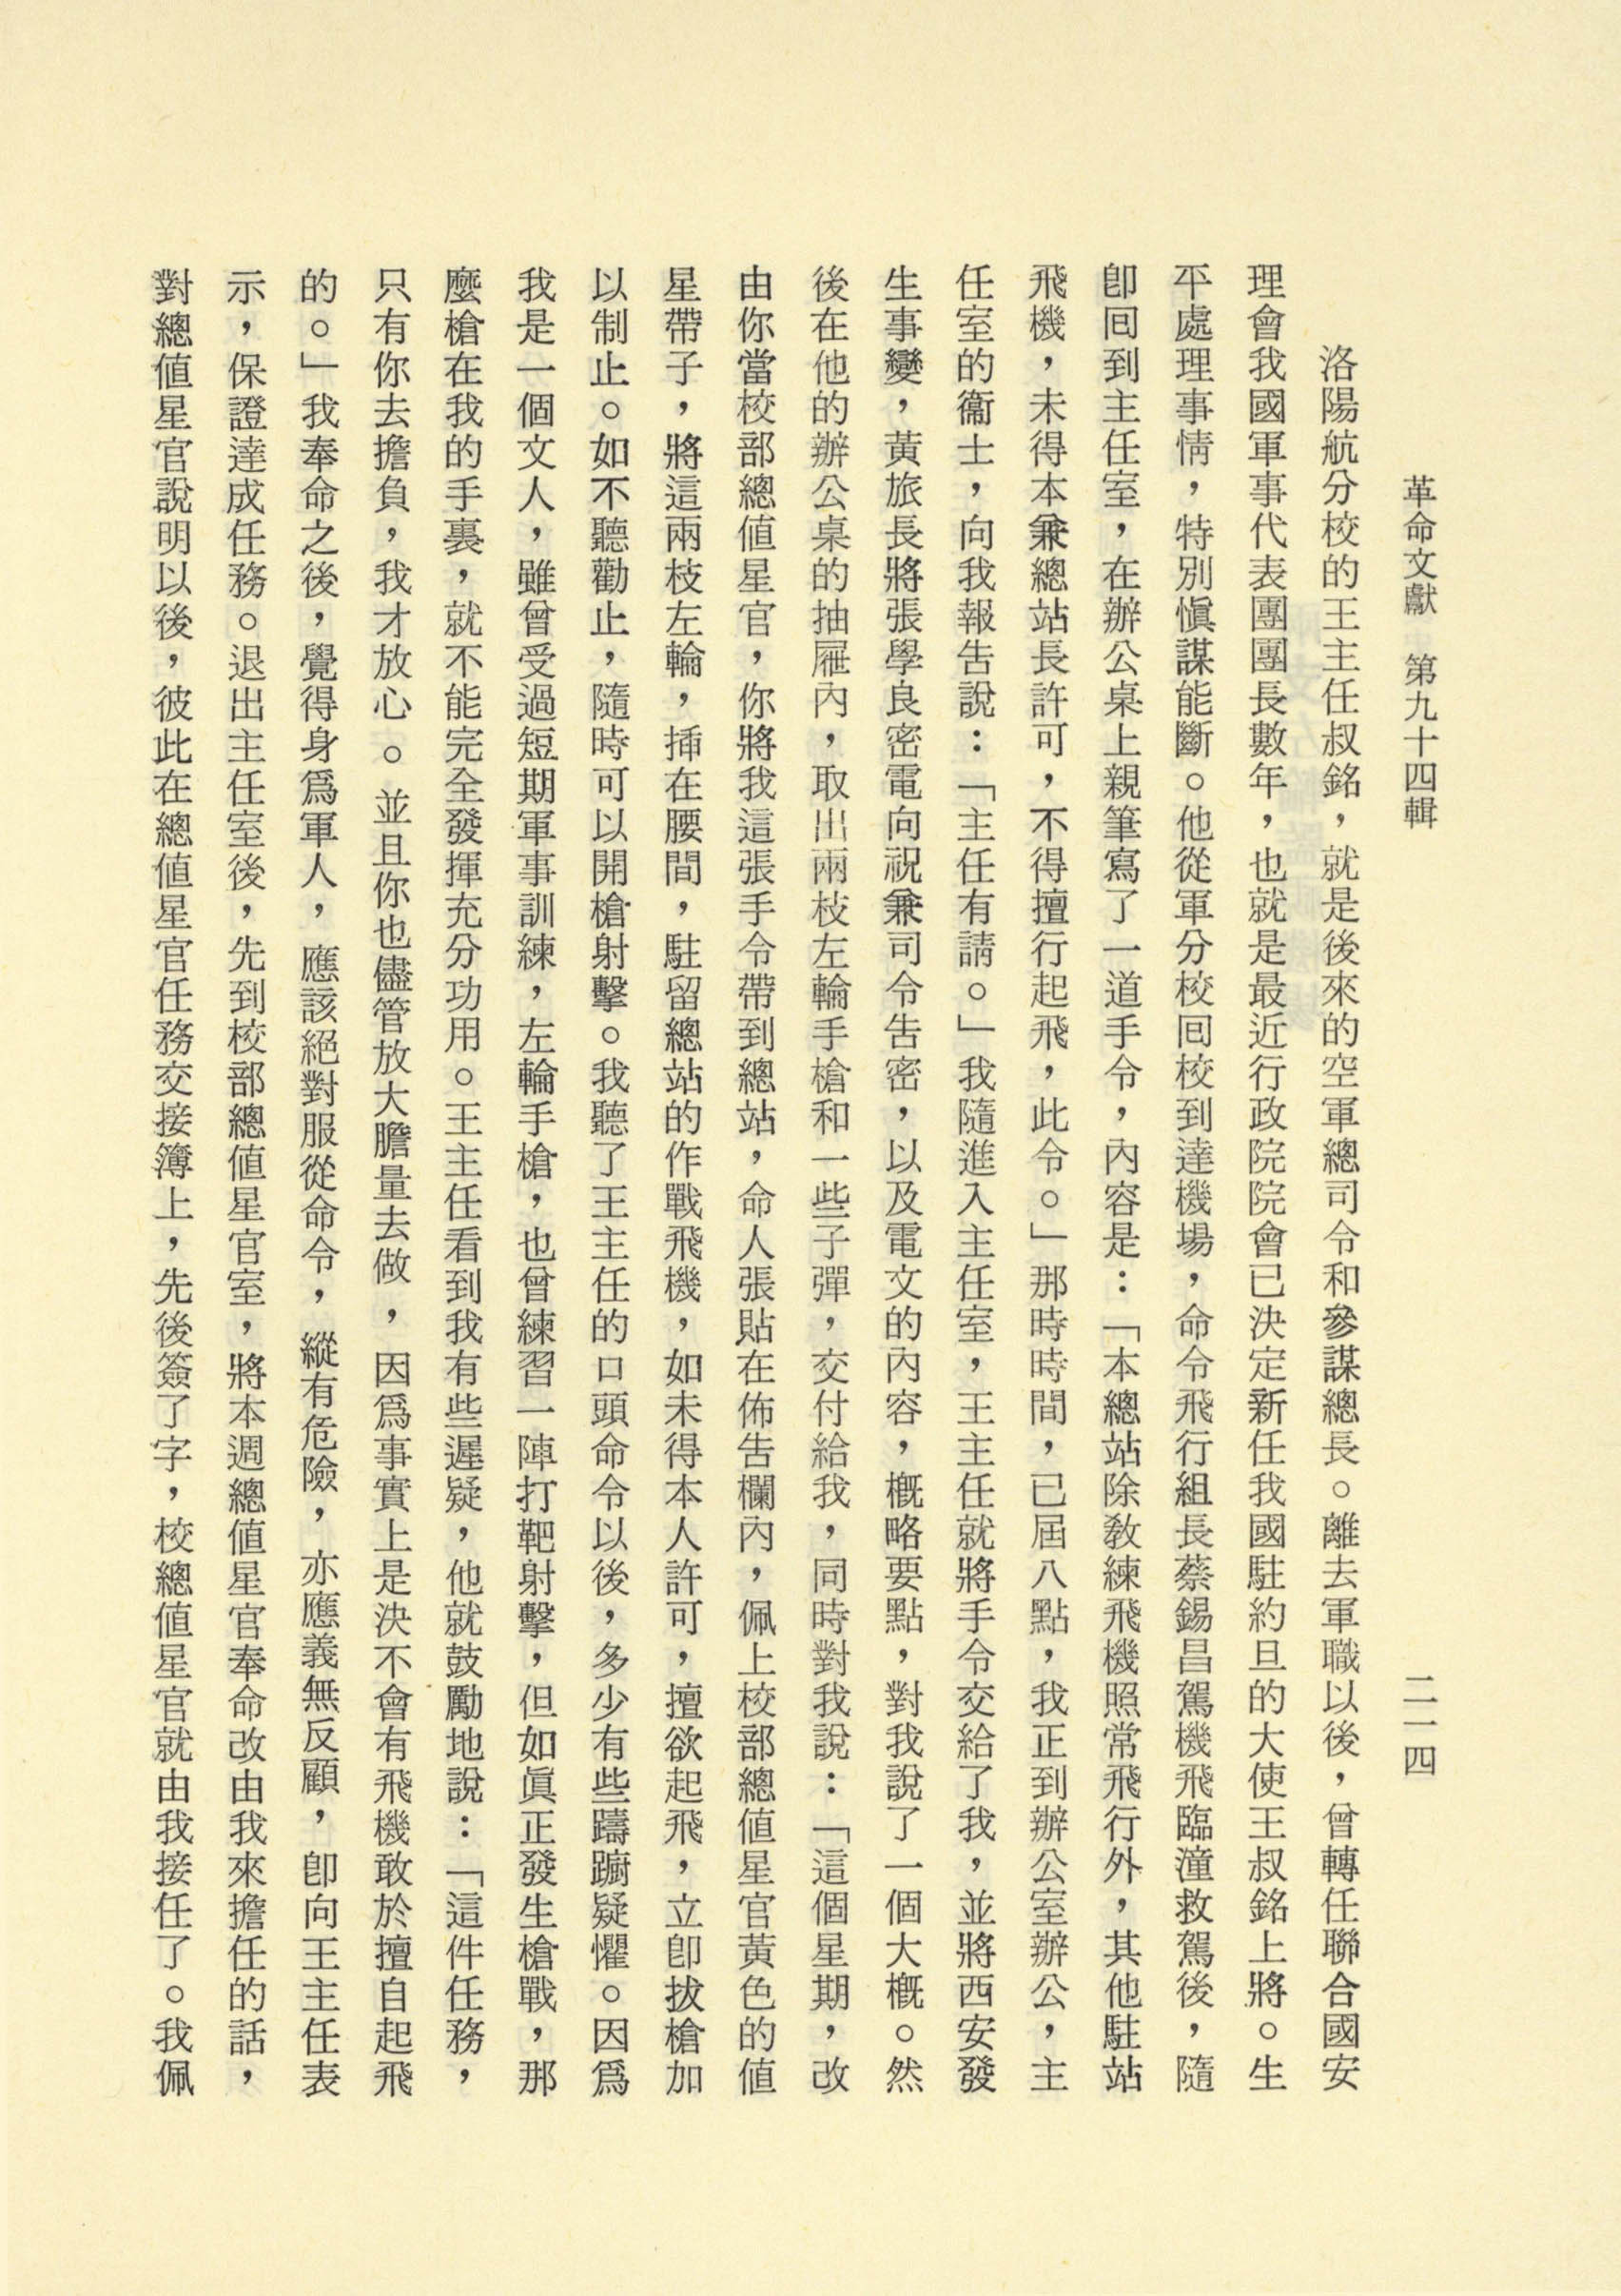 革命文獻 第九十四輯 二一四
洛陽航分校的王主任叔銘，就是後來的空軍總司令和參謀總長。離去軍職以後，曾轉任聯合國安
理會我國軍事代表團團長數年，也就是最近行政院院會已決定新任我國駐約旦的大使王叔銘上將。生
平處理事情，特別愼謀能斷。他從軍分校囘校到達機場，命令飛行組長蔡錫昌駕機飛臨潼救駕後，隨
卽囘到主任室，在辦公桌上親筆寫了一道手令，內容是：「本總站除敎練飛機照常飛行外，其他駐站
飛機，未得本兼總站長許可，不得擅行起飛，此令。」那時時間，已屆八點，我正到辦公室辦公，主
任室的衞士，向我報告說：「主任有請。」我隨進入主任室，王主任就將手令交給了我，並將西安發
生事變，黃旅長將張學良密電向祝兼司令告密，以及電文的內容，概略要點，對我說了一個大概。然
後在他的辦公桌的抽屜內，取出兩枝左輪手槍和一些子彈，交付給我，同時對我說：「這個星期，改
由你當校部總値星官，你將我這張手令帶到總站，命人張貼在佈告欄內，佩上校部總値星官黃色的値
星帶子，將這兩枝左輪，揷在腰間，駐留總站的作戰飛機，如未得本人許可，擅欲起飛，立卽拔槍加
以制止。如不聽勸止，隨時可以開槍射擊。我聽了王主任的口頭命令以後，多少有些躊躕疑懼。因爲
我是一個文人，雖曾受過短期軍事訓練，左輪手槍，也曾練習一陣打靶射擊，但如眞正發生槍戰，那
麼槍在我的手裏，就不能完全發揮充分功用。王主任看到我有些遲疑，他就鼓勵地說：「這件任務，
只有你去擔負，我才放心。並且你也儘管放大膽量去做，因爲事實上是決不會有飛機敢於擅自起飛
的。」我奉命之後，覺得身爲軍人，應該絕對服從命令，縱有危險，亦應義無反顧，卽向王主任表
示，保證達成任務。退出主任室後，先到校部總値星官室，將本週總値星官奉命改由我來擔任的話，
對總値星官說明以後，彼此在總値星官任務交接簿上，先後簽了字，校總値星官就由我接任了。我佩